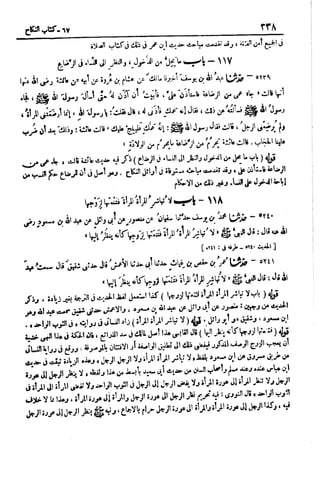 ٣٣٨ ٦٧ - كتاب النكاح
في الجميع أمن الفتنة ، وقد تقدمت مباحث حديث ابن عمر في ذلك في كتاب الصلاة
١١٧ - باب ما يحل من الدخول والنظر إلى النساء في الرضاع
٥٢٣٩ - حدثنا عبد الله بن يوسف أخبرنا مالك عن هشام بن عروة عن أبيه عن عائشة رضي الله عنها
أنها قالت « جاء عمي من الرضاعة فاستأذن علي ، فأبيت أن آذن له حتى أسأل رسول الله ﷺ ، فجاء
رسول الله ﷺ فسألته عن ذلك ، فقال : إنه عمك فأذني له . قالت فقلت : يا رسول الله ، إنما أرضعتني المرأة ،
ولم يرضعني الرجل ، قالت فقال رسول الله ﷺ : إنه عمك فليلج عليك . قالت عائشة : وذلك بعد أن ضرب
علينا الحجاب . قالت عائشة يحرم من الرضاعة ما يحرم من الولادة »
قوله ( باب ما يحل من الدخول والنظر إلى النساء في الرضاع ) ذكر فيه حديث عائشة قالت « جاء عمي من
الرضاعة فاستأذن علي » وقد تقدمت مباحثه مستوفاة في أوائل النكاح . وهو أصل في أن للرضاع حكم النسب من
إباحة الدخول على النساء وغير ذلك من الأحكام
١١٨ - باب لا تباشر المرأة المرأة فتنعتها لزوجها
٥٢٤٠ - حدثنا محمد بن يوسف حدثنا سفيان عن منصور عن أبي وائل عن عبد الله بن مسعود رضي
الله عنه قال : قال النبي ﷺ « لا تباشر المرأة المرأة فتنعتها لزوجها كأنه ينظر إليها »
[ الحديث ٥٢٤٠ - طرفه في : ٥٢٤١ ]
٥٢٤١ - حدثنا عمر بن حفص بن غياث حدثنا أبي حدثنا الأعمش قال حدثني شقيق قال سمعت عبد
الله قال : قال النبي ﷺ « لا تباشر المرأة المرأة فتنعتها لزوجها كأنه ينظر إليها »
قوله ( باب لا تباشر المرأة المرأة فتنعتها لزوجها ) كذا استعمل لفظ الحديث في الترجمة بغير زيادة ، وذكر
الحديث من وجهين : منصور عن أبي وائل عن عبد الله بن مسعود . والأعمش حدثني شقيق سمعت عبد الله وهو
ابن مسعود ، وشقيق هو أبو وائل . قوله ( لا تباشر المرأة المرأة ) زاد النسائي في روايته « في الثوب الواحد » .
قوله ( فتنعتها لزوجها كأنه ينظر إليها ) قال القابسي هذا أصل لمالك في سد الذرائع ، فإن الحكمة في هذا النهي خشية
أن يعجب الزوج الوصف المذكور فيفضي ذلك إلى تطليق الواصفة أو الافتتان بالموصوفة . ووقع في رواية النسائي
من طريق مسروق عن ابن مسعود بلفظ « لا تباشر المرأة المرأة ولا الرجل الرجل » وهذه الزيادة ثبتت في حديث
ابن عباس عنده وعند مسلم وأصحاب السنن من حديث أبي سعيد بأبسط من هذا ولفظه « لا ينظر الرجل إلى عورة
الرجل ولا تنظر المرأة إلى عورة المرأة ولا يفض الرجل إلى الرجل في الثوب الواحد ولا تفضي المرأة إلى المرأة في
الثوب الواحد » قال النووي : فيه تحريم نظر الرجل إلى عورة الرجل والمرأة إلى عورة المرأة ، وهذا مما لا خلاف
فيه ، وكذا الرجل إلى عورة المرأة والمرأة إلى عورة الرجل حرام بالاجماع ، ونبه ﷺ بنظر الرجل إلى عورة الرجل